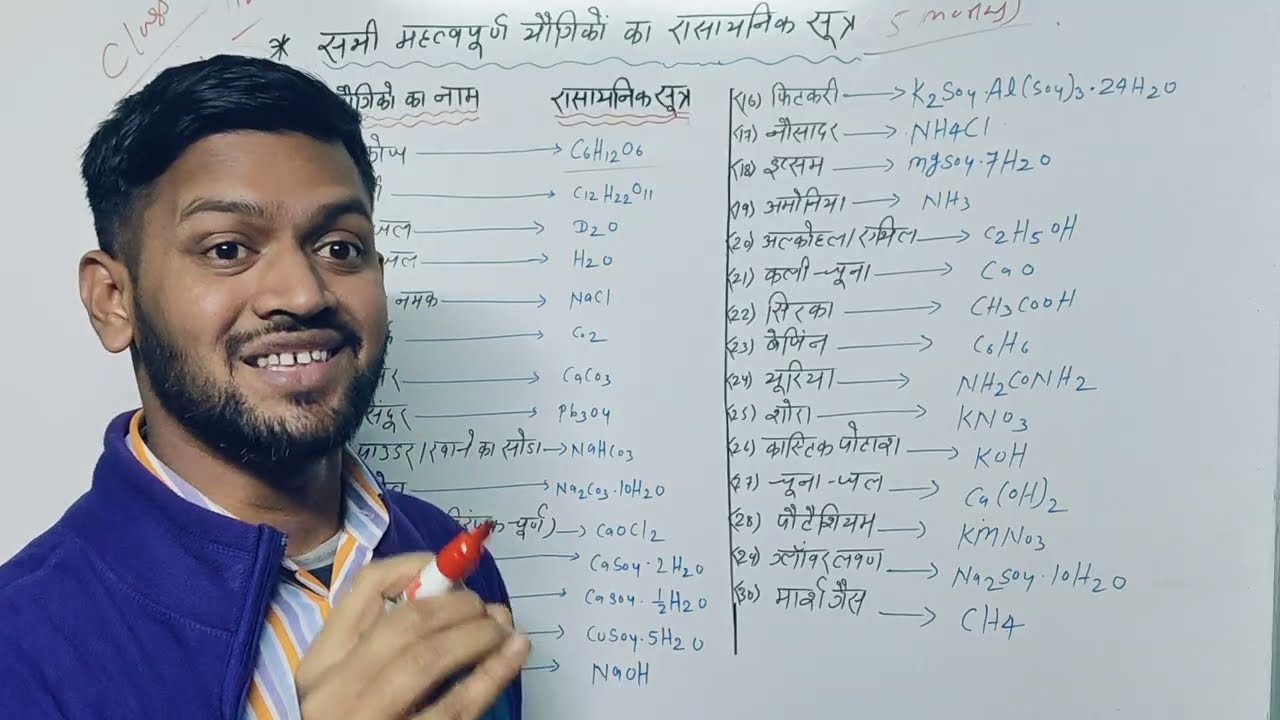 Class
* सभी महत्वपूर्ण यौगिकों का रासायनिक सूत्र
यौगिको का नाम रासायनिक सूत्र
→ C6H12O6
→ C12H22O11
जल → D2O
जल → H2O
नमक → NaCl
→ Co2
→ CaCo3
सिंदूर → Pb3O4
पाउडर/खाने का सोडा → NaHCo3
→ Na2Co3.10H2O
चूर्ण) → CaOCl2
→ CaSo4.2H2O
→ CaSo4.½H2O
→ CuSo4.5H2O
→ NaOH
(16) फिटकरी → K2So4.Al(So4)3.24H2O
(17) नौसादर → NH4Cl
(18) इप्सम → MgSo4.7H2O
(19) अमोनिया → NH3
(20) अल्कोहल/एथिल → C2H5OH
(21) कली-चूना → CaO
(22) सिरका → CH3COOH
(23) बेंजिन → C6H6
(24) यूरिया → NH2CONH2
(25) शोरा → KNO3
(26) कास्टिक पोटाश → KOH
(27) चूना-जल → Ca(OH)2
(28) पौटेशियम → KMNO3
(29) ग्लॉबर लवण → Na2So4.10H2O
(30) मार्श गैस → CH4